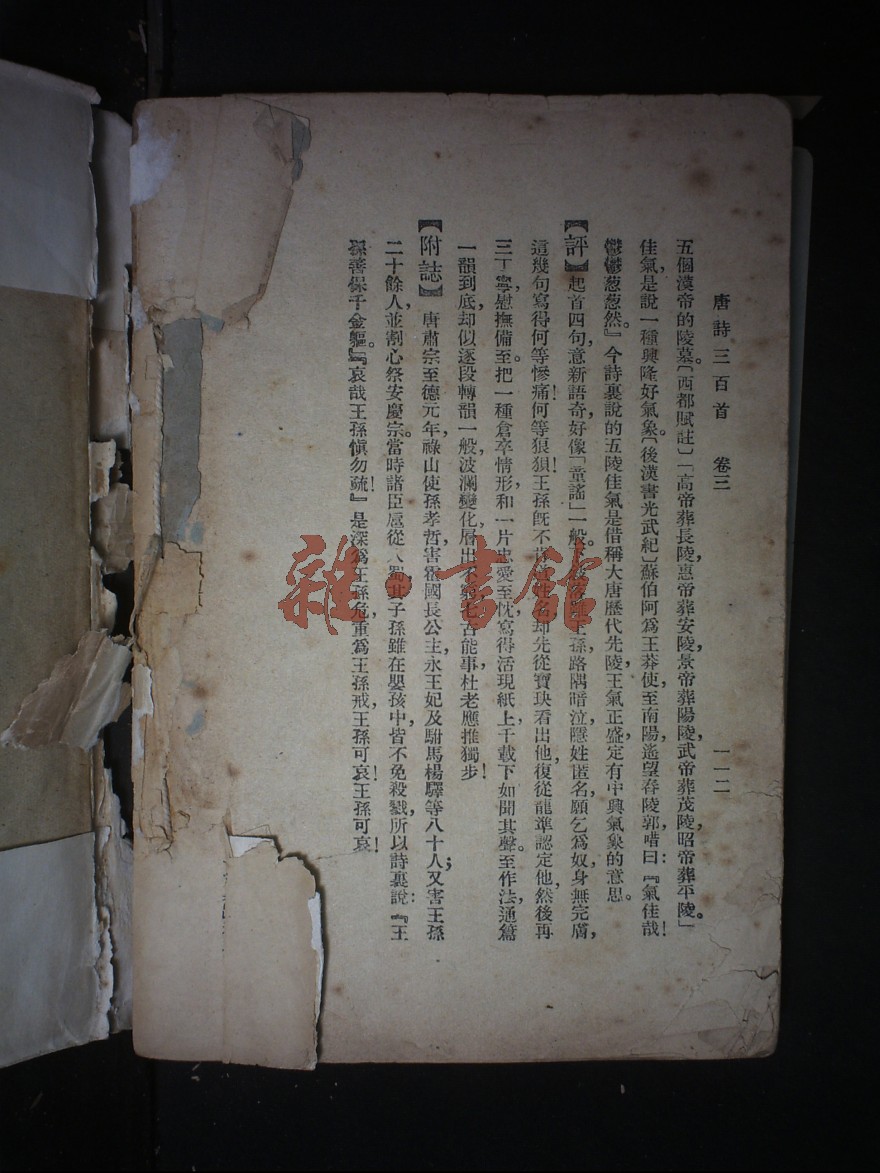 唐詩三百首　卷三　一一二
五個漢帝的陵墓。〔西都賦註〕「高帝葬長陵，惠帝葬安陵，景帝葬陽陵，武帝葬茂陵，昭帝葬平陵。」
佳氣，是說一種興隆好氣象。〔後漢書光武紀〕蘇伯阿爲王莽使至南陽，遙望舂陵郭，唶曰：『氣佳哉！
鬱鬱葱葱然。』今詩裏說的五陵佳氣，是借稱大唐歷代先陵，王氣正盛，定有中興氣象的意思。
【評】起首四句，意新語奇，好像「童謠」一般。王孫路隅暗泣，隱姓匿名，願乞爲奴，身無完膚，
這幾句寫得何等慘痛！何等狼狽！王孫旣不肯姓名，却先從寶玦看出他，復從龍準認定他，然後再
三丁寧，慰撫備至。把一種倉卒情形，和一片忠愛至忱，寫得活現紙上，千載下如聞其聲。至作法，通篇
一韻到底，却似逐段轉韻一般，波瀾變化，層出不窮，能事，杜老應推獨步！
【附誌】唐肅宗至德元年，祿山使孫孝哲害霍國長公主，永王妃及駙馬楊驛等八十人；又害王孫
二十餘人，並割心祭安慶宗。當時諸臣扈從入蜀，其子孫雖在嬰孩中，皆不免殺戮，所以詩裏說：『王
孫善保千金軀。』『哀哉王孫愼勿疏！』是深爲王孫危，重爲王孫戒，王孫可哀！王孫可哀！
雜·書館